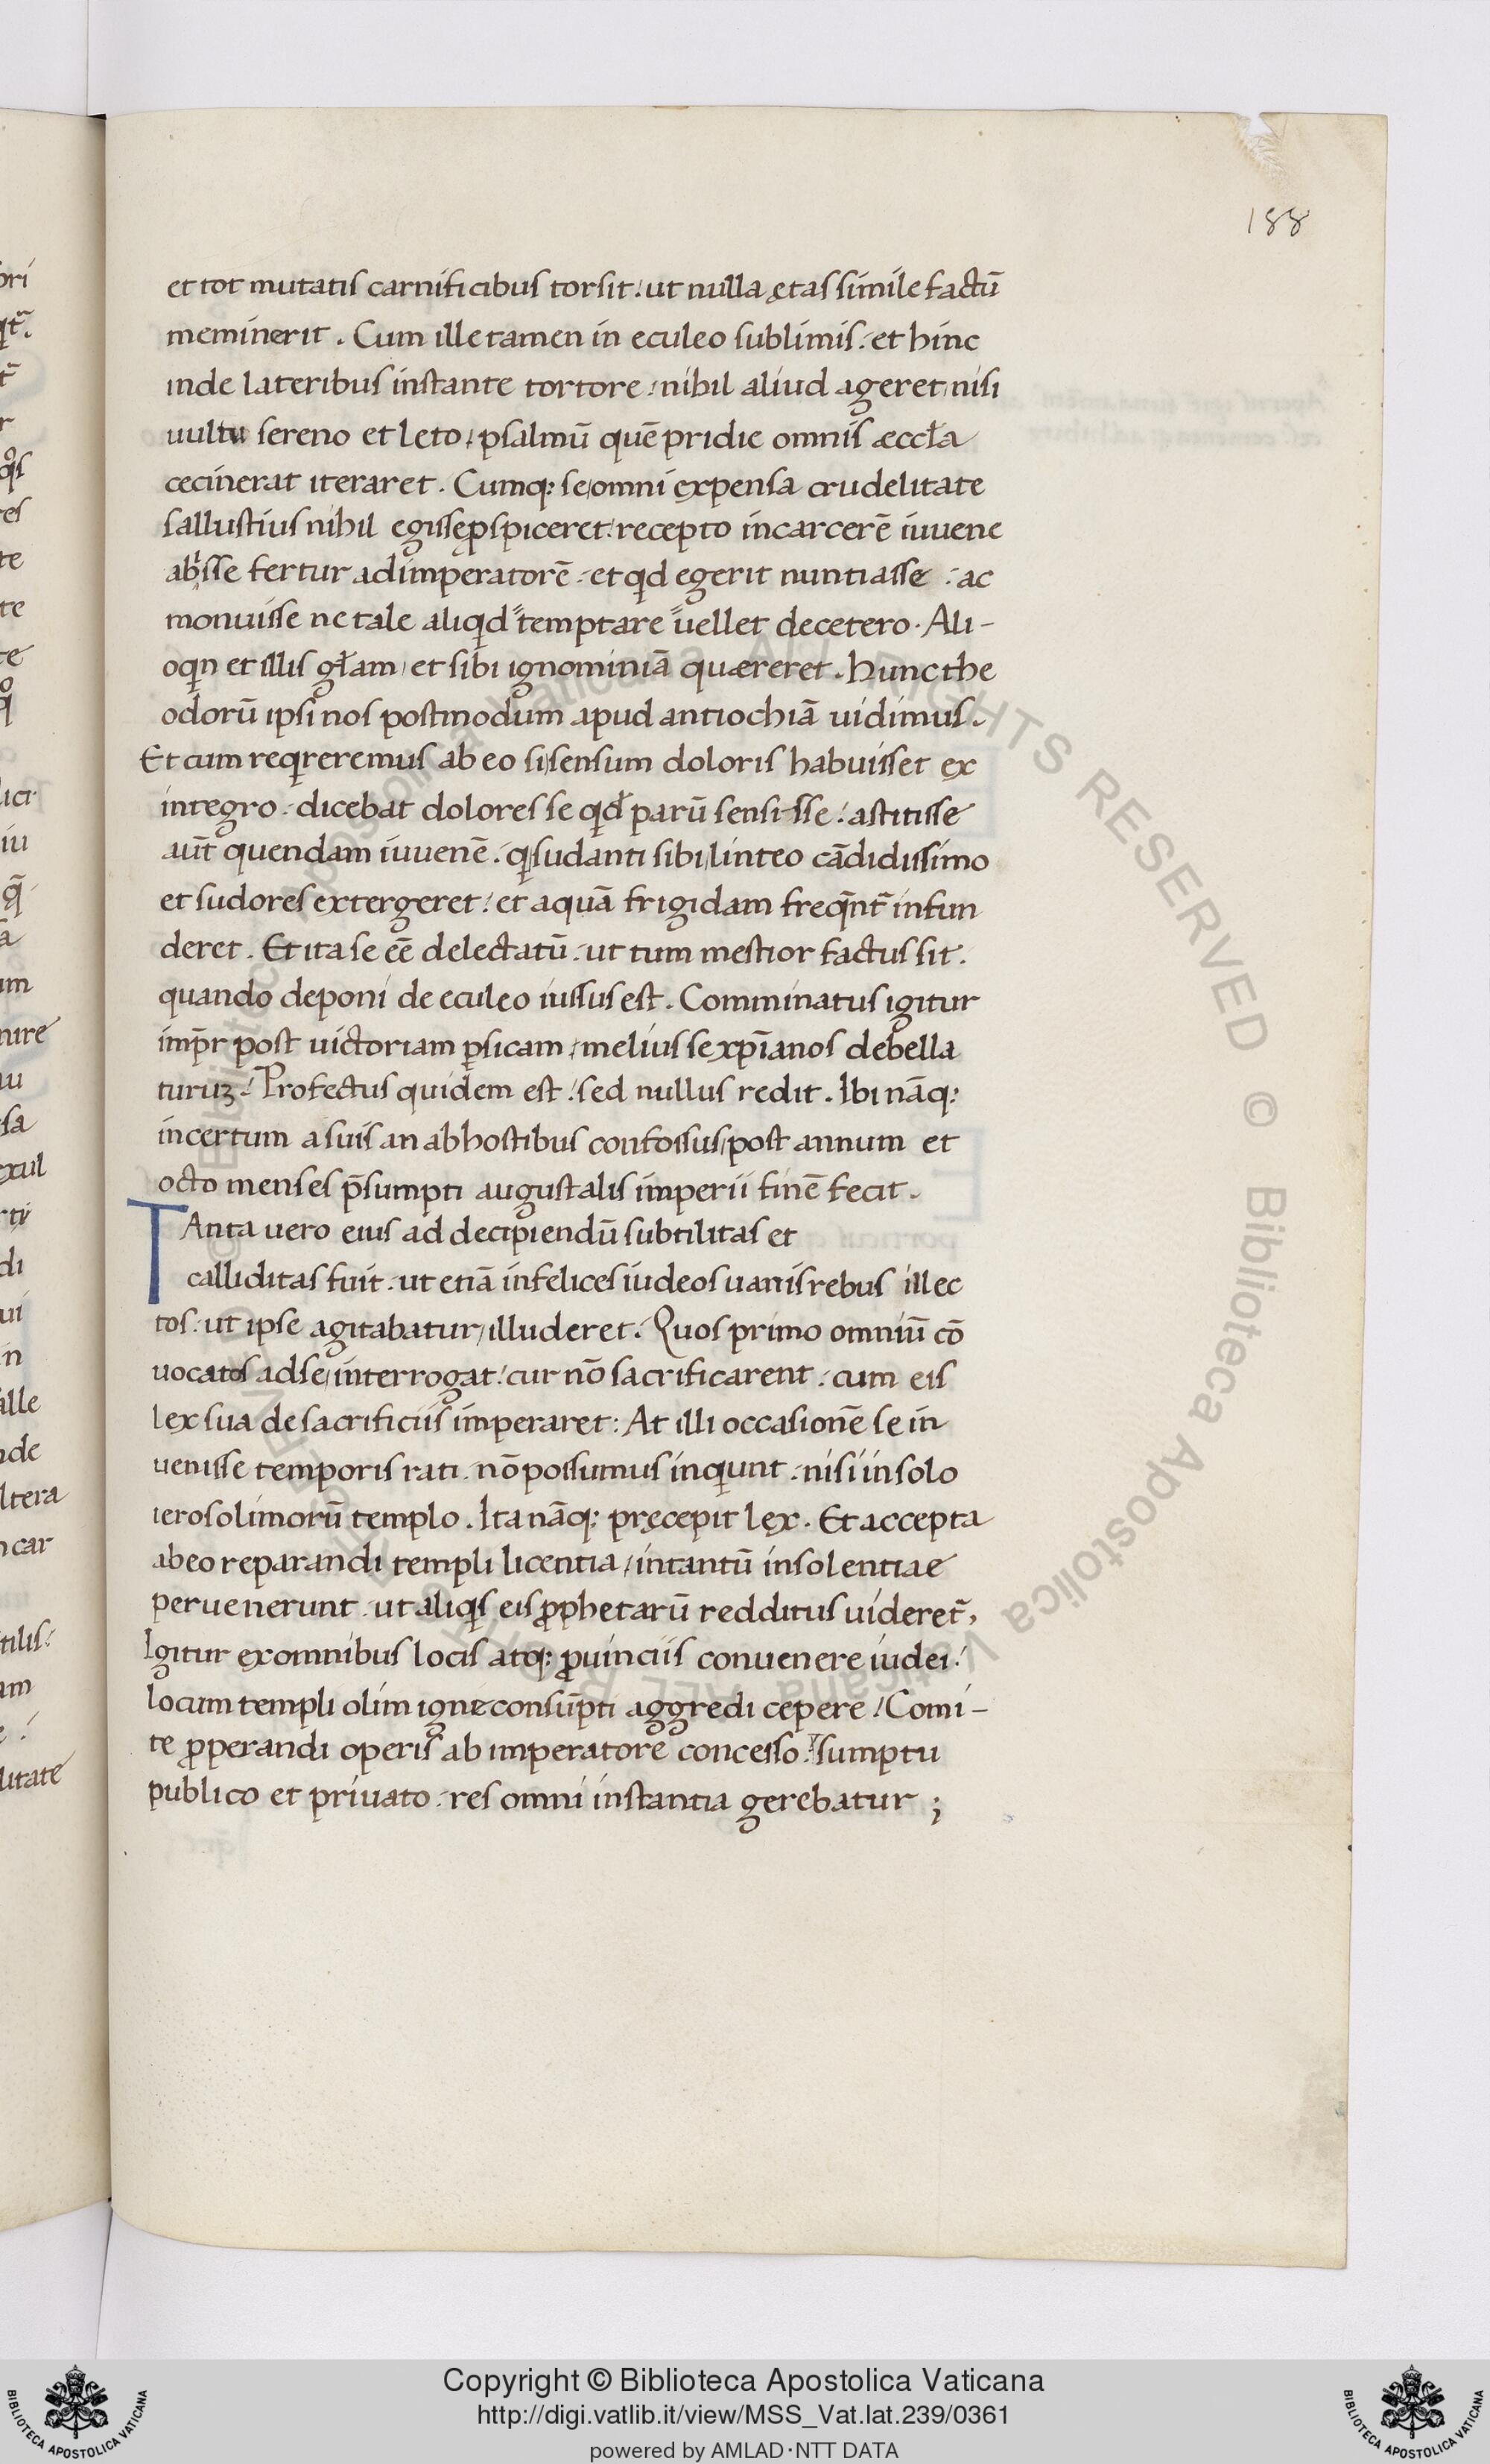 188
et tot mutatis carnificibus torsit. ut nulla ętas simile factū
meminerit. Cum ille tamen in eculeo sublimis. et hinc
inde lateribus instante tortore. nihil aliud ageret nisi
uultu sereno et leto, psalmū quē pridie omnis æccl̄a
cecinerat iteraret. Cumq: se omni expensa crudelitate
sallustius nihil egisse ꝑspiceret. recepto incarcerē iuuene
abisse fertur adimperatorē. et qd egerit nuntiasse. ac
monuisse ne tale aliqd temptare uellet decetero. Ali-
oqn et illis gl̄am, et sibi ignominiā quæreret. Hunc the
odorū ipsi nos postmodum apud antiochiā uidimus.
Et cum reqreremus ab eo si sensum doloris habuisset ex
integro. dicebat dolores se qd̄ parū sensisse. astitisse
aūt quendam iuuenē. q sudanti sibi linteo cādidissimo
et sudores extergeret. et aquā frigidam freq̄nt̄ infun
deret. Et ita se eē delectatū. ut tum mestior factus sit.
quando deponi de eculeo iussus est. Comminatus igitur
imp̄r post uictoriam ꝑsicam, melius se xp̄ianos debella
turuꝫ. Profectus quidem est. sed nullus redit. Ibi nāq:
incertum a suis an ab hostibus confossus, post annum et
octo menses p̄sumpti augustalis imperii finē fecit.
TAnta uero eius ad decipiendū subtilitas et
calliditas fuit. ut etiā infelices iudeos uanis rebus illec
tos. ut ipse agitabatur, illuderet. Quos primo omniū cō
uocatos ad se interrogat. cur nō sacrificarent. cum eis
lex sua de sacrificiis imperaret: At illi occasionē se in
uenisse temporis rati. nō possumus inqunt. nisi in solo
ierosolimorū templo. Ita nāq: pręcepit lex. Et accepta
ab eo reparandi templi licentia, intantū insolentiae
peruenerunt. ut aliqs eis ꝓphetarū redditus uideret̄,
Igitur ex omnibus locis atq: ꝓuinciis conuenere iudei.
locum templi olim igne consūpti aggredi cepere. Comi-
te ꝓperandi operis ab imperatore concesso. sumptu
publico et priuato. res omni instantia gerebatur;
© Biblioteca Apostolica Vaticana ALL RIGHTS RESERVED
Copyright © Biblioteca Apostolica Vaticana
http://digi.vatlib.it/view/MSS_Vat.lat.239/0361
powered by AMLAD·NTT DATA
BIBLIOTECA APOSTOLICA VATICANA
BIBLIOTECA APOSTOLICA VATICANA